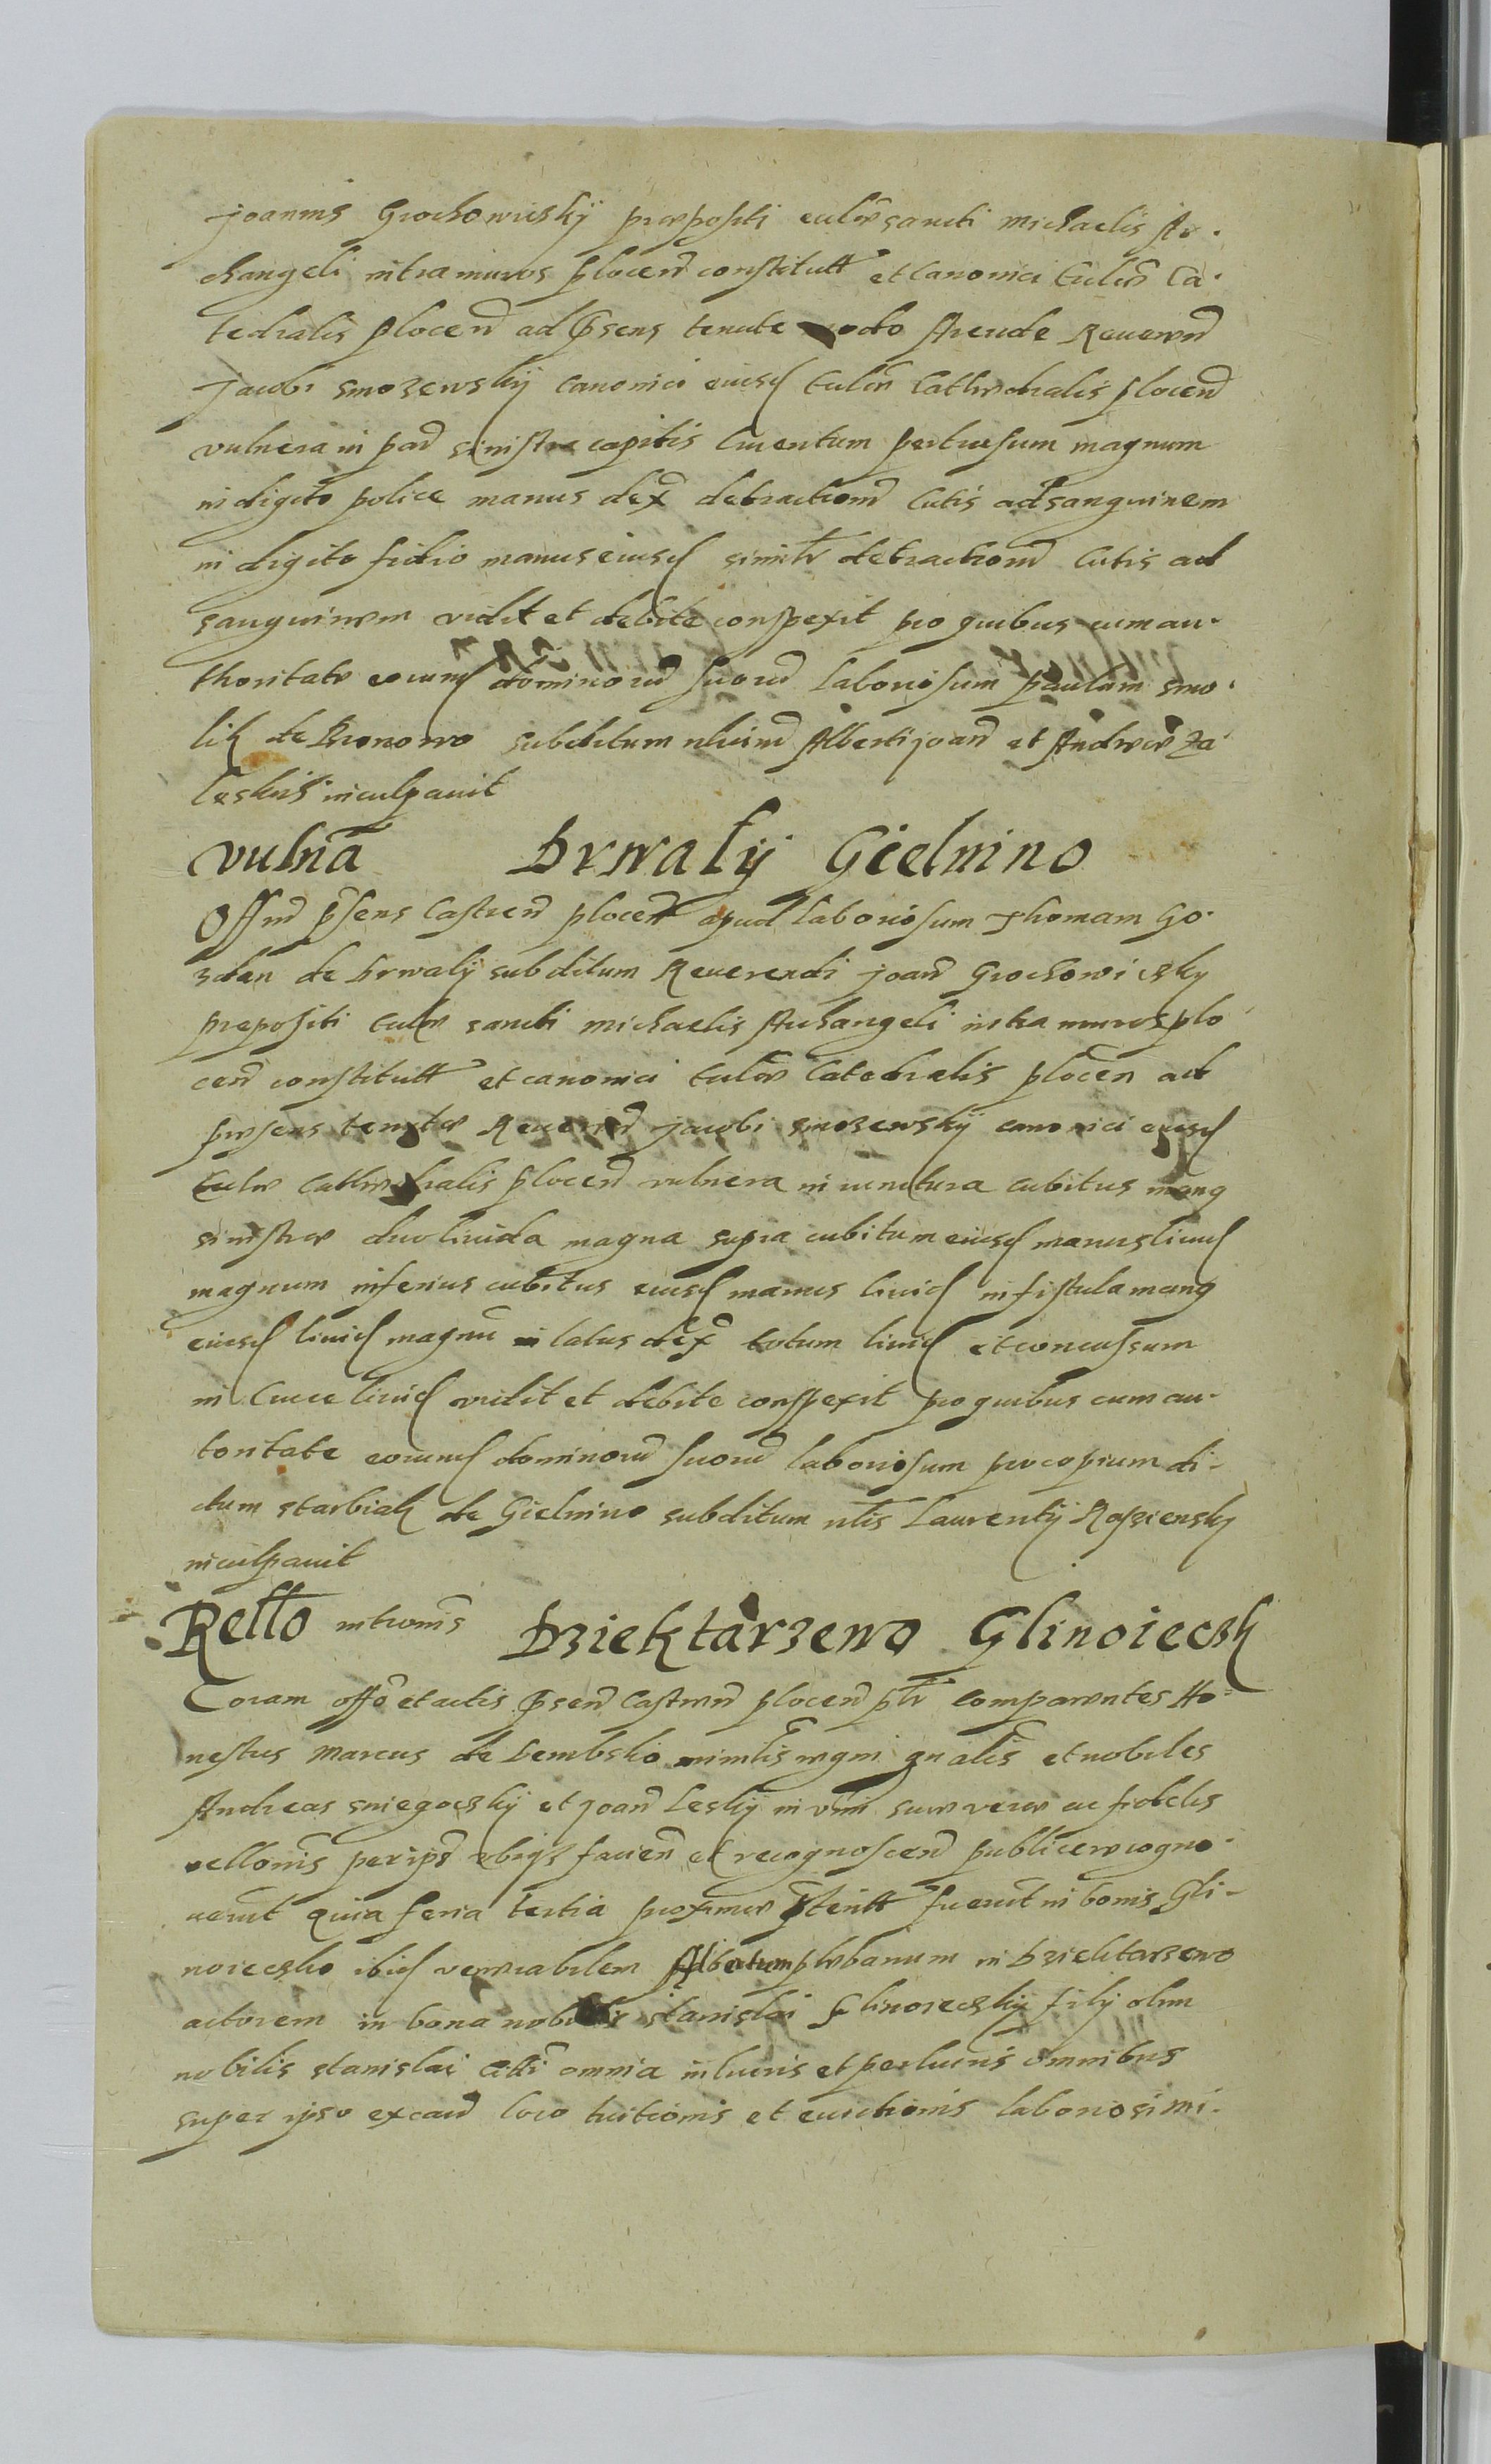 Joannis Grochowiesky praepositi ecclae sancti Michaelis Ar-
changeli intra muros Plocen constitutt et Canonici Ecclae Ca-
tedralis Plocen ad psens tenute modo Arende Reueren
Jacobi Smoszewsky Canonici eiusd Ecclae Cathedralis Plocen
vulnera in par sinistra capitis cruentum pertusum magnum
in digito police manus dex detractiom cutis ad sanguinem
in digito manus eiusd similr detractiom cutis ad
sanguinem vidit et debite conspexit pro quibus cum au-
thoritate eorumd dominorum suorum laboriosum Paulum Smo-
lik de Bronowo subditum Alberti Joan et Andreae Za
leskiis inculpauit
Vulna Brwaly Gielnino
Offm psens Castren Plocen apud laboriosum Thomam Go-
zdan de Brwaly subditum Reuerendi Joan Grochowicsky
prepositi ecclae sancti Michaelis Archangeli intra muros Plo
cen constitutt et canonici ecclae Catedralis Plocen ad
praesens tenutae Reueren Jacobi Smoszewsky canonici eiusd
Ecclae Cathedralis Plocen vulnera in iunctura cubitus manq
sinistrae duo liuida magna supra cubitum eiusd manus liuid
magnum inferius cubitus eiusd manus liuid in fistula manq
eiusd liuid magnu in latus dex totum liuid et concussum
in liuid vidit et debite conspexit pro quibus cum au-
toritate eorumd dominorum suorum laboriosum Procopium di-
ctum Skarbiak de Gielnino subditum nlis Laurentij Rosziensky
inculpauit
Rello intromis Dziektarzewo Glinoiecsk
Coram offo et actis psen Castren Plocen plr comparentes Ho-
nestus Marcus de Dembsko mimlis regni gnalis et nobiles
Andreas Sniegocsky et Joan Lesky in vim suae verae ac fidelis
rellonis per ipos facien et recognoscen publice recogno-
uerut quia feria tertia proxime ptentt fuerut in bonis Gli-
noiecsko ibid venerabilem Albertum plebanum in Dziektarzewo
actorem in bona nobilis Stanislai Glinoiecsky filij olim
nobilis Stanislai omnia in lucris et perlucris omnibus
super ipso loco tuitionis et euictionis laboriosi Mi-